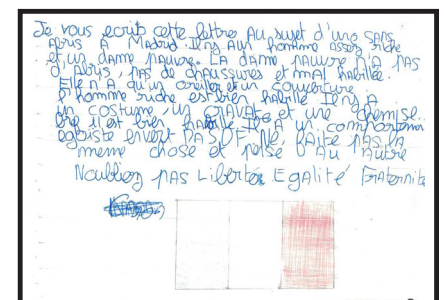 Je vous ecrits cette lettre Au sujet d'une sans
Abris A Madrid. Il ny A un homme Assez riche
et un dame pauvre. LA dame pauvre n'A PAS
d'Abris, PAS de chaussures et mal habillée.
Elle n'A qu'un oreiller et un couverture
L'homme riche est bien habillé Il ny A
un costume un CRAVATe et une chemise.
bre il est bien habillé Il A un comportement
egoiste envert DA S.D.F Ne, FAite PAS LA
meme chose et pense Au Autre
N'oubliez PAS Liberté Egalité Fraternité